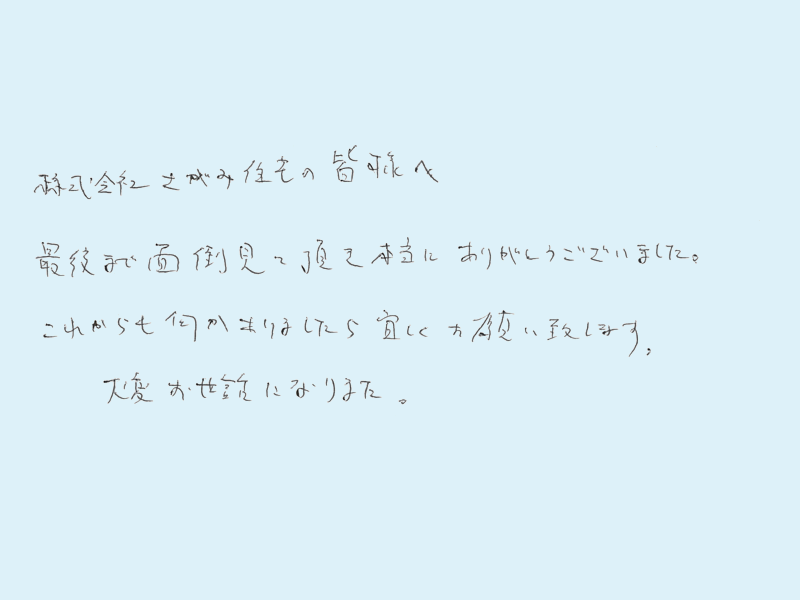 株式会社さがみ住宅の皆様へ
最後まで面倒見て頂き本当にありがとうございました。
これからも何かありましたら宜しくお願い致します。
大変お世話になりました。